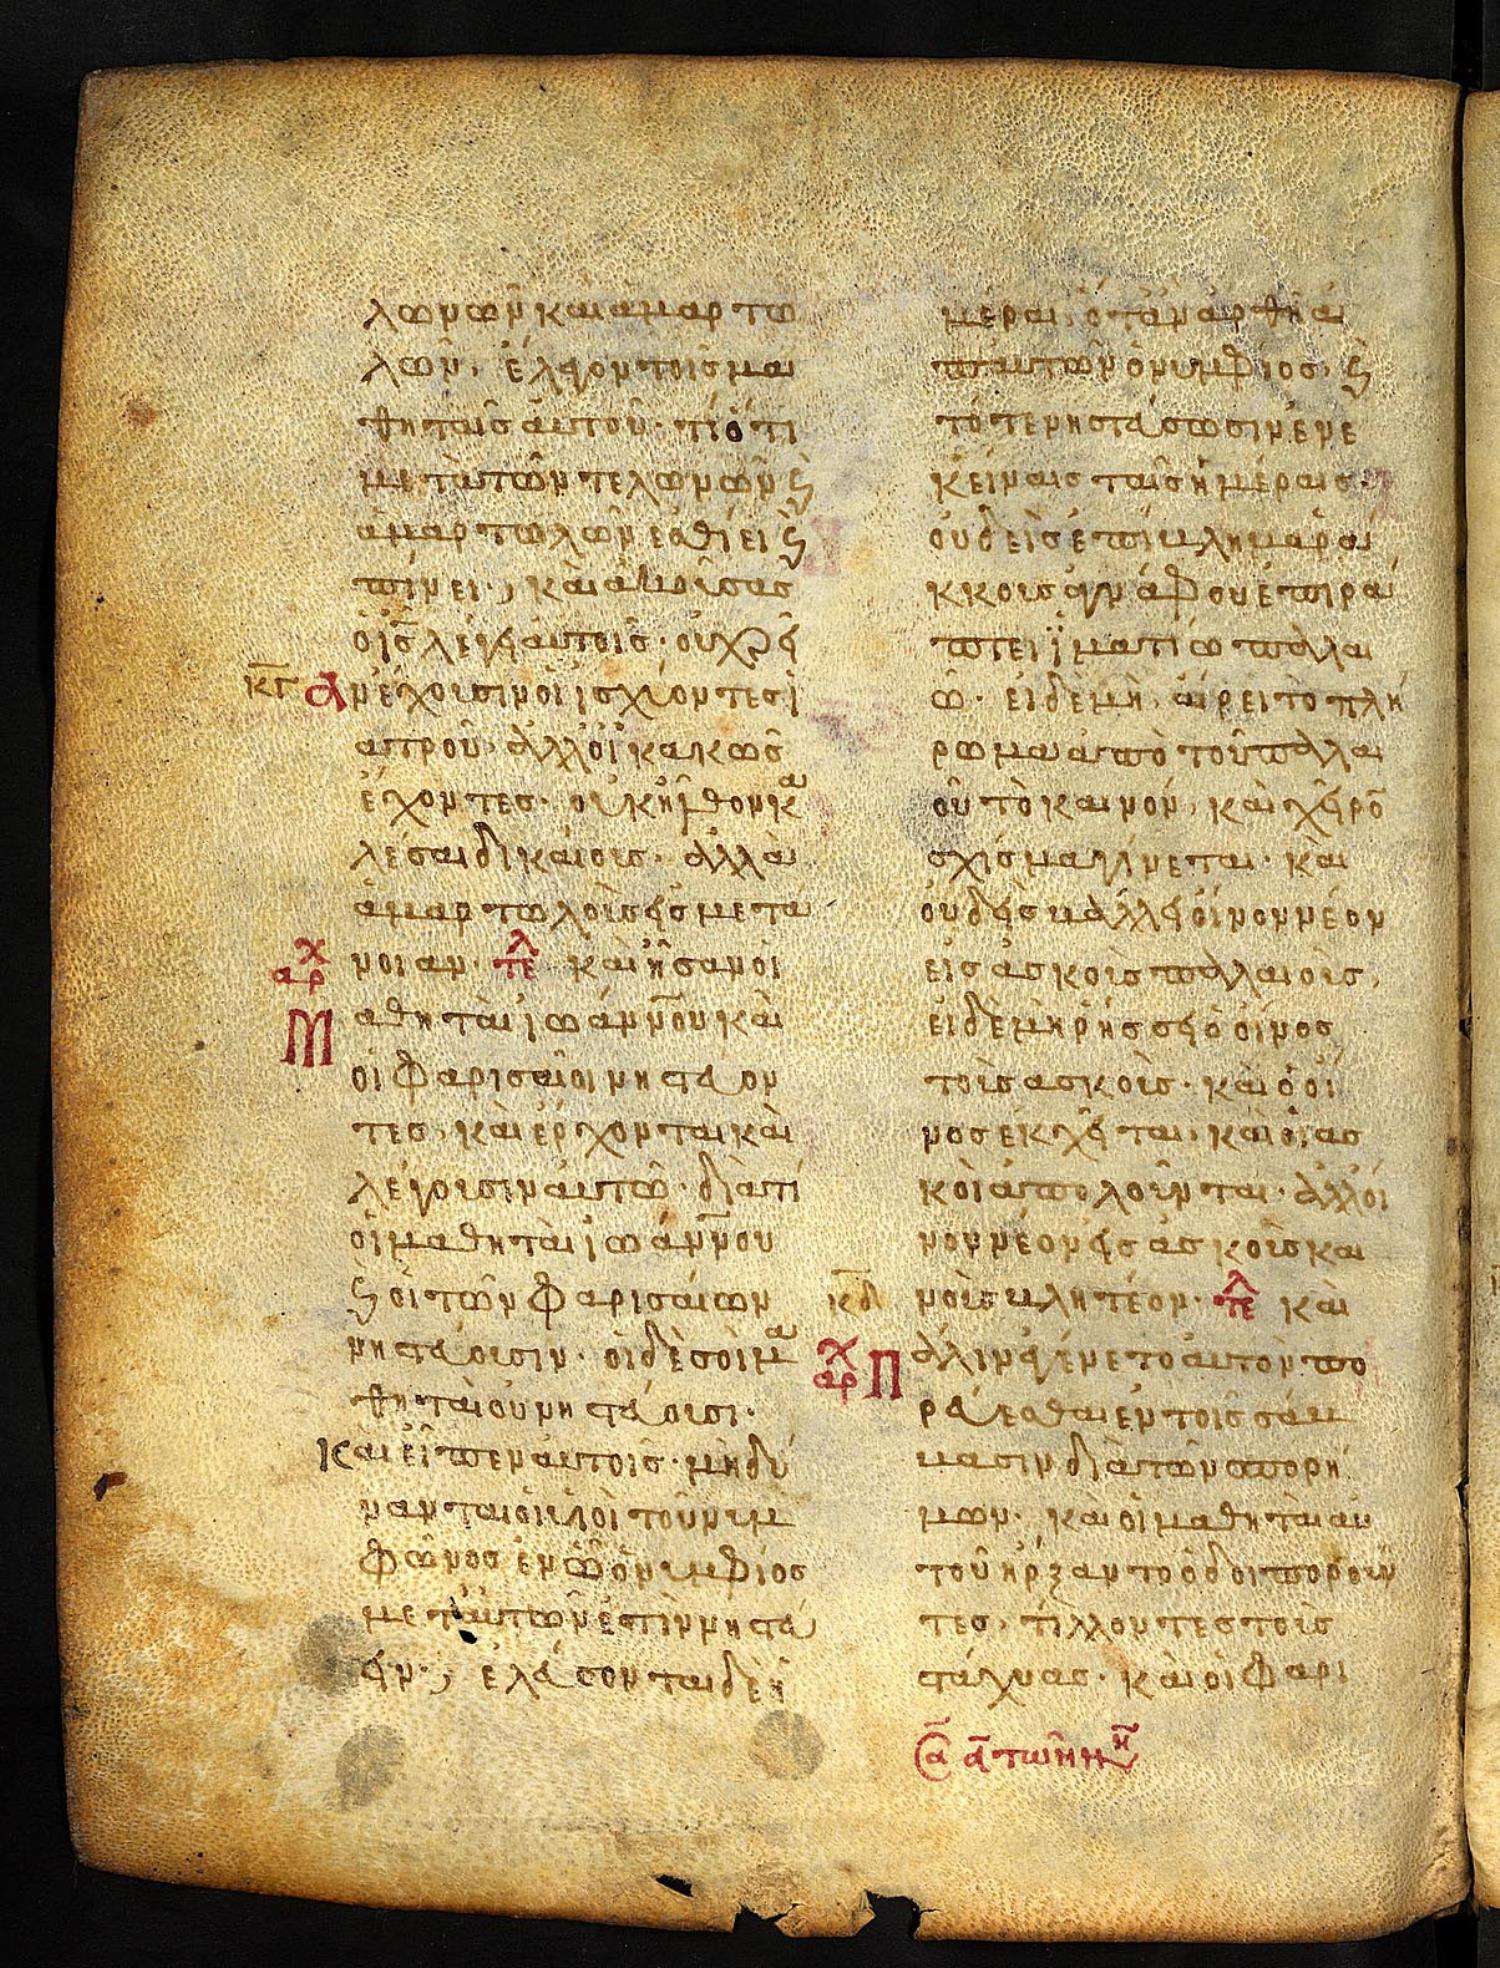 λωνῶν καὶ ἁμαρτω
λῶν, ἔλεγον τοῖς μα
θηταῖς αὐτοῦ· τί ὅτι
μετὰ τῶν τελωνῶν ϗ
ἁμαρτωλῶν ἐσθίει ϗ
πίνει; καὶ ἀκούσας
ὁ ἰς λέγει αὐτοῖς· οὐ χρεί
κγ αν ἔχουσιν οἱ ἰσχύοντες ἰ
ατροῦ· ἀλλ' οἱ κακῶς
ἔχοντες· οὐκ ἦλθον κα
λέσαι δικαίους· ἀλλὰ
ἁμαρτωλοὺς εἰς μετά
αρχ νοιαν· τελ καὶ ἦσαν οἱ
Μ αθηταὶ ἰωάννου καὶ
οἱ φαρισαῖοι νηστεύον
τες, καὶ ἔρχονται καὶ
λέγουσιν αὐτῶ· διατί
οἱ μαθηταὶ ἰωάννου
ϗ οἱ τῶν φαρισαίων
νηστεύουσιν· οἱ δὲ σοὶ μα
θηταὶ οὐ νηστεύουσι·
Καὶ εἶπεν αὐτοῖς· μὴ δύ
νανται οἱ υἱοὶ τοῦ νυμ
φῶνος ἐν ὧ ὁ νυμφίος
μετ' αὐτῶν ἐστὶν νηστεύ
ειν; ἐλεύσονται δὲ ἡ
μέραι, ὅταν ἀρθῆ ἀ
π' αὐτῶν ὁ νυμφίος, ϗ
τότε νηστεύσωσιν ἐν ἐ
κείναις ταῖς ἡμέραις·
οὐδεὶς ἐπίβλημα ῥά
κκους ἀγνάφου ἐπιρά
πτει ἱματίω παλαι
ῶ· εἰ δὲ μὴ, αἴρει τὸ πλή
ρωμα ἀπὸ τοῦ παλαι
οῦ τὸ καινόν, καὶ χεῖρο
σχίσμα γίνεται· καὶ
οὐδεὶς βάλλει οἶνον νέον
εἰς ἀσκοὺς παλαιούς,
εἰ δὲ μὴ ῥήσσει ὁ οἶνος
τοὺς ἀσκούς· καὶ ὁ οἶ
νος ἐκχεῖται, καὶ οἱ ἀσ
κοὶ ἀπολοῦνται· ἀλλ' οἶ
νον νέον εἰς ἀσκοὺς και
κδ νοὺς βλητέον· τελ καὶ
αρχ Π άλιν ἐγένετο αὐτὸν πο
ρεύεσθαι ἐν τοῖς σάβ
βασιν διὰ τῶν σπορί
μων· καὶ οἱ μαθηταὶ αὐ
τοῦ ἤρξαντο ὁδοιποροῦν
τες, τίλλοντες τοὺς
στάχυας· καὶ οἱ φαρι